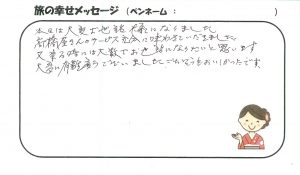 旅の幸せメッセージ (ペンネーム： )
本日は大変お世話様になりました
高橋屋さんのサービス充分に味わせていただきました
又来る時には大勢でお世話になりたいと思います
大変有難うございましたごちそうもおいしかったです。